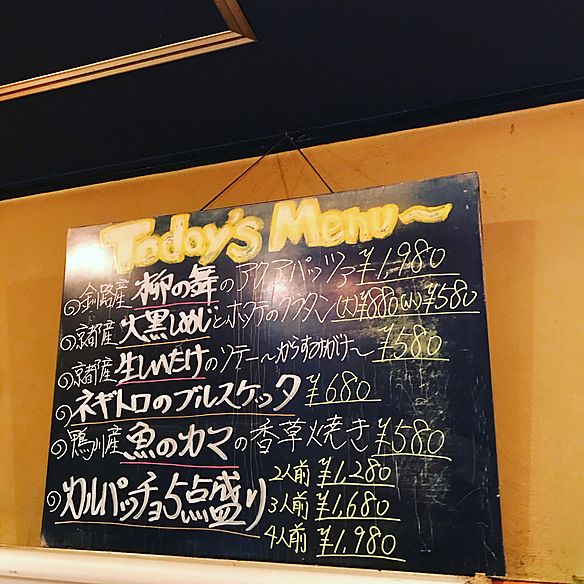 Today's Menu〜
釧路産 柳の舞のアクアパッツァ ¥1,980
京都産 大黒しめじとホタテのグラタン (大)¥880 (小)¥580
京都産 生しいたけのソテー〜からすみがけ〜 ¥580
ネギトロのブルスケッタ ¥680
鴨川産 魚のカマの香草焼き ¥580
カルパッチョ5点盛り 2人前 ¥1,280
3人前 ¥1,680
4人前 ¥1,980